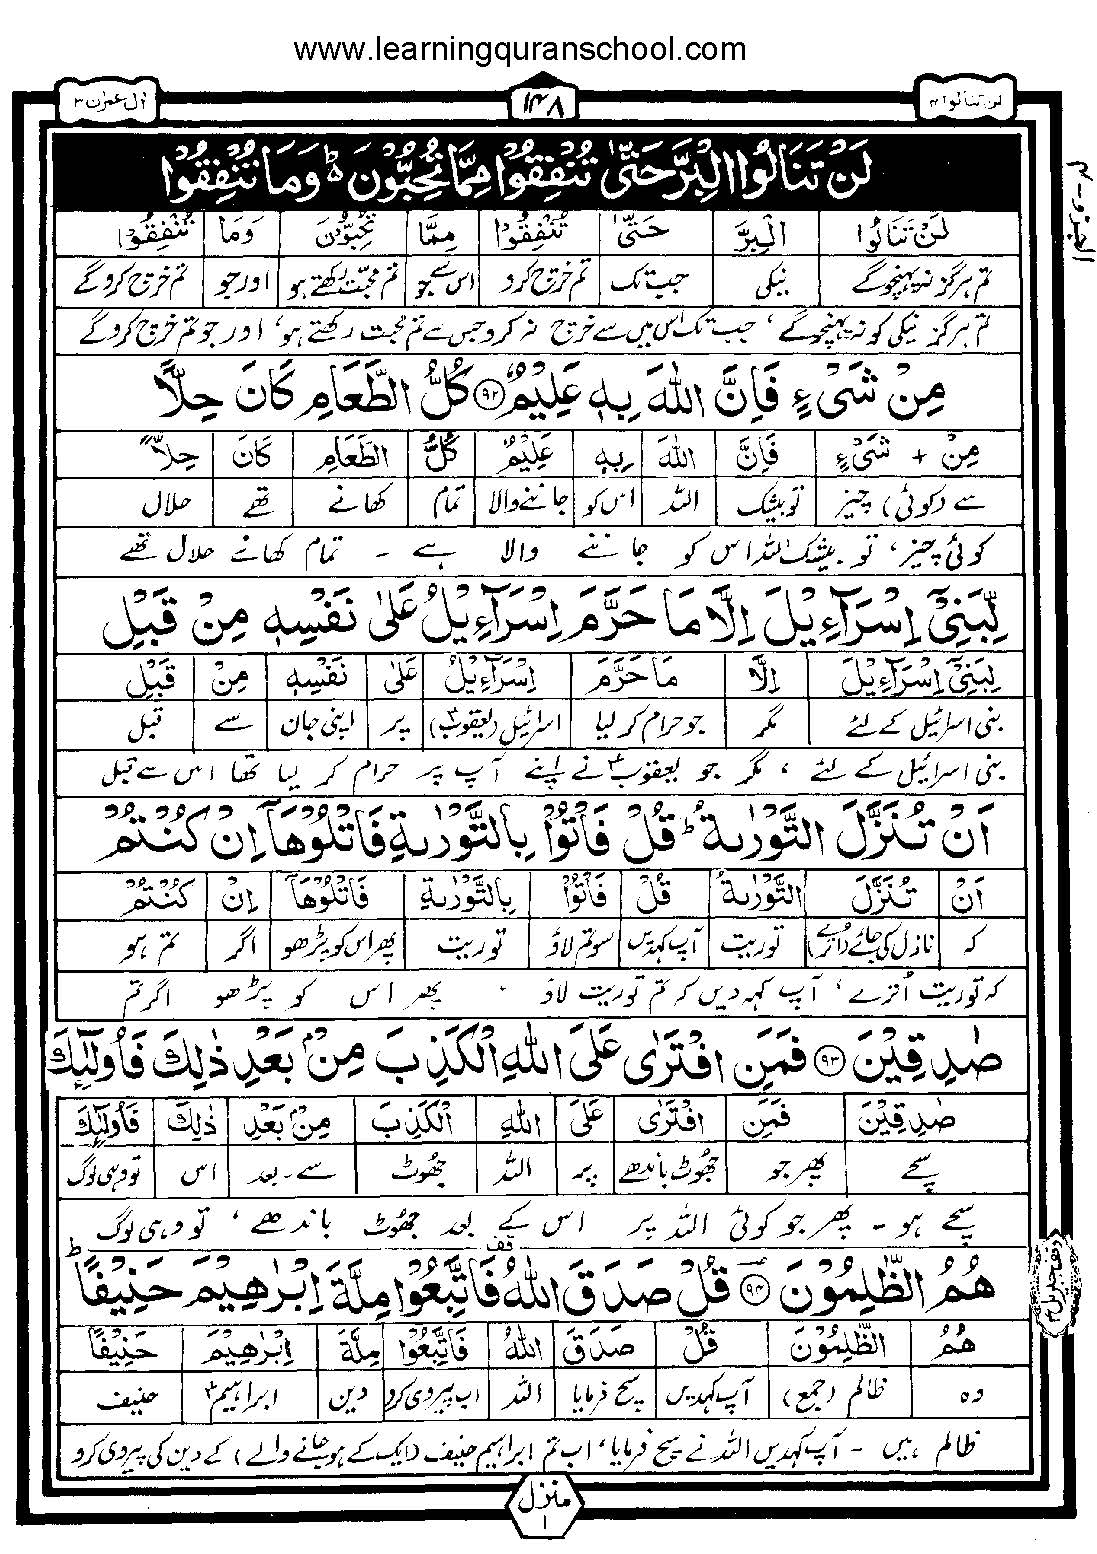 www.learningquranschool.com
لن تنالوا ۴
۱۴۸
اٰل عمرٰن ۳
الجزو ۴
لَنْ تَنَالُوا الْبِرَّ حَتّٰى تُنْفِقُوْا مِمَّا تُحِبُّوْنَ ؕ۬ وَمَا تُنْفِقُوْا
لَنْ تَنَالُوا الْبِرَّ حَتّٰى تُنْفِقُوْا مِمَّا تُحِبُّوْنَ وَمَا تُنْفِقُوْا
تم ہرگز نہ پہنچو گے نیکی جب تک تم خرچ کرو اس سے جو تم محبت رکھتے ہو اور جو تم خرچ کرو گے
تم ہرگز نیکی کو نہ پہنچو گے ، جب تک اس میں سے خرچ نہ کرو جس سے تم محبت رکھتے ہو ، اور جو تم خرچ کرو گے
مِنْ شَىْءٍ فَاِنَّ اللّٰهَ بِهٖ عَلِيْمٌ ﴿۹۲﴾ كُلُّ الطَّعَامِ كَانَ حِلًّا
مِنْ + شَىْءٍ فَاِنَّ اللّٰهَ بِهٖ عَلِيْمٌ كُلُّ الطَّعَامِ كَانَ حِلًّا
سے (کوئی) چیز تو بیشک اللہ اس کو جاننے والا تمام کھانے تھے حلال
کوئی چیز ، تو بیشک اللہ اس کو جاننے والا ہے - تمام کھانے حلال تھے
لِّبَنِىْٓ اِسْرَآءِيْلَ اِلَّا مَا حَرَّمَ اِسْرَآءِيْلُ عَلٰى نَفْسِهٖ مِنْ قَبْلِ
لِبَنِىْٓ اِسْرَآءِيْلَ اِلَّا مَا حَرَّمَ اِسْرَآءِيْلُ عَلٰى نَفْسِهٖ مِنْ قَبْلِ
بنی اسرائیل کے لئے مگر جو حرام کر لیا اسرائیل (یعقوبؑ) پر اپنی جان سے قبل
بنی اسرائیل کے لئے ، مگر جو یعقوبؑ نے اپنے آپ پر حرام کر لیا تھا اس سے قبل
اَنْ تُنَزَّلَ التَّوْرٰىةُ ؕ قُلْ فَاْتُوْا بِالتَّوْرٰىةِ فَاتْلُوْهَآ اِنْ كُنْتُمْ
اَنْ تُنَزَّلَ التَّوْرٰىةُ قُلْ فَاْتُوْا بِالتَّوْرٰىةِ فَاتْلُوْهَآ اِنْ كُنْتُمْ
کہ نازل کی جائے (اترے) توریت آپ کہدیں سو تم لاؤ توریت پھر اس کو پڑھو اگر تم ہو
کہ توریت اُترے ، آپ کہہ دیں کہ تم توریت لاؤ ، پھر اس کو پڑھو اگر تم
صٰدِقِيْنَ ﴿۹۳﴾ فَمَنِ افْتَرٰى عَلَى اللّٰهِ الْكَذِبَ مِنْۢ بَعْدِ ذٰلِكَ فَاُولٰٓئِكَ
صٰدِقِيْنَ فَمَنِ افْتَرٰى عَلَى اللّٰهِ الْكَذِبَ مِنْۢ بَعْدِ ذٰلِكَ فَاُولٰٓئِكَ
سچے پھر جو جھوٹ باندھے پر اللہ جھوٹ سے - بعد اس تو وہی لوگ
سچے ہو - پھر جو کوئی اللہ پر اس کے بعد جھوٹ باندھے ، تو وہی لوگ
هُمُ الظّٰلِمُوْنَ ﴿۹۴﴾ قُلْ صَدَقَ اللّٰهُ قف فَاتَّبِعُوْا مِلَّةَ اِبْرٰهِيْمَ حَنِيْفًا ؕ
هُمُ الظّٰلِمُوْنَ قُلْ صَدَقَ اللّٰهُ فَاتَّبِعُوْا مِلَّةَ اِبْرٰهِيْمَ حَنِيْفًا
وہ ظالم (جمع) آپ کہدیں سچ فرمایا اللہ اب پیروی کرو دین ابراہیمؑ حنیف
ظالم ہیں - آپ کہدیں اللہ نے سچ فرمایا ، اب تم ابراہیم حنیف (ایک کے ہو جانے والے) کے دین کی پیروی کرو
منزل ۱